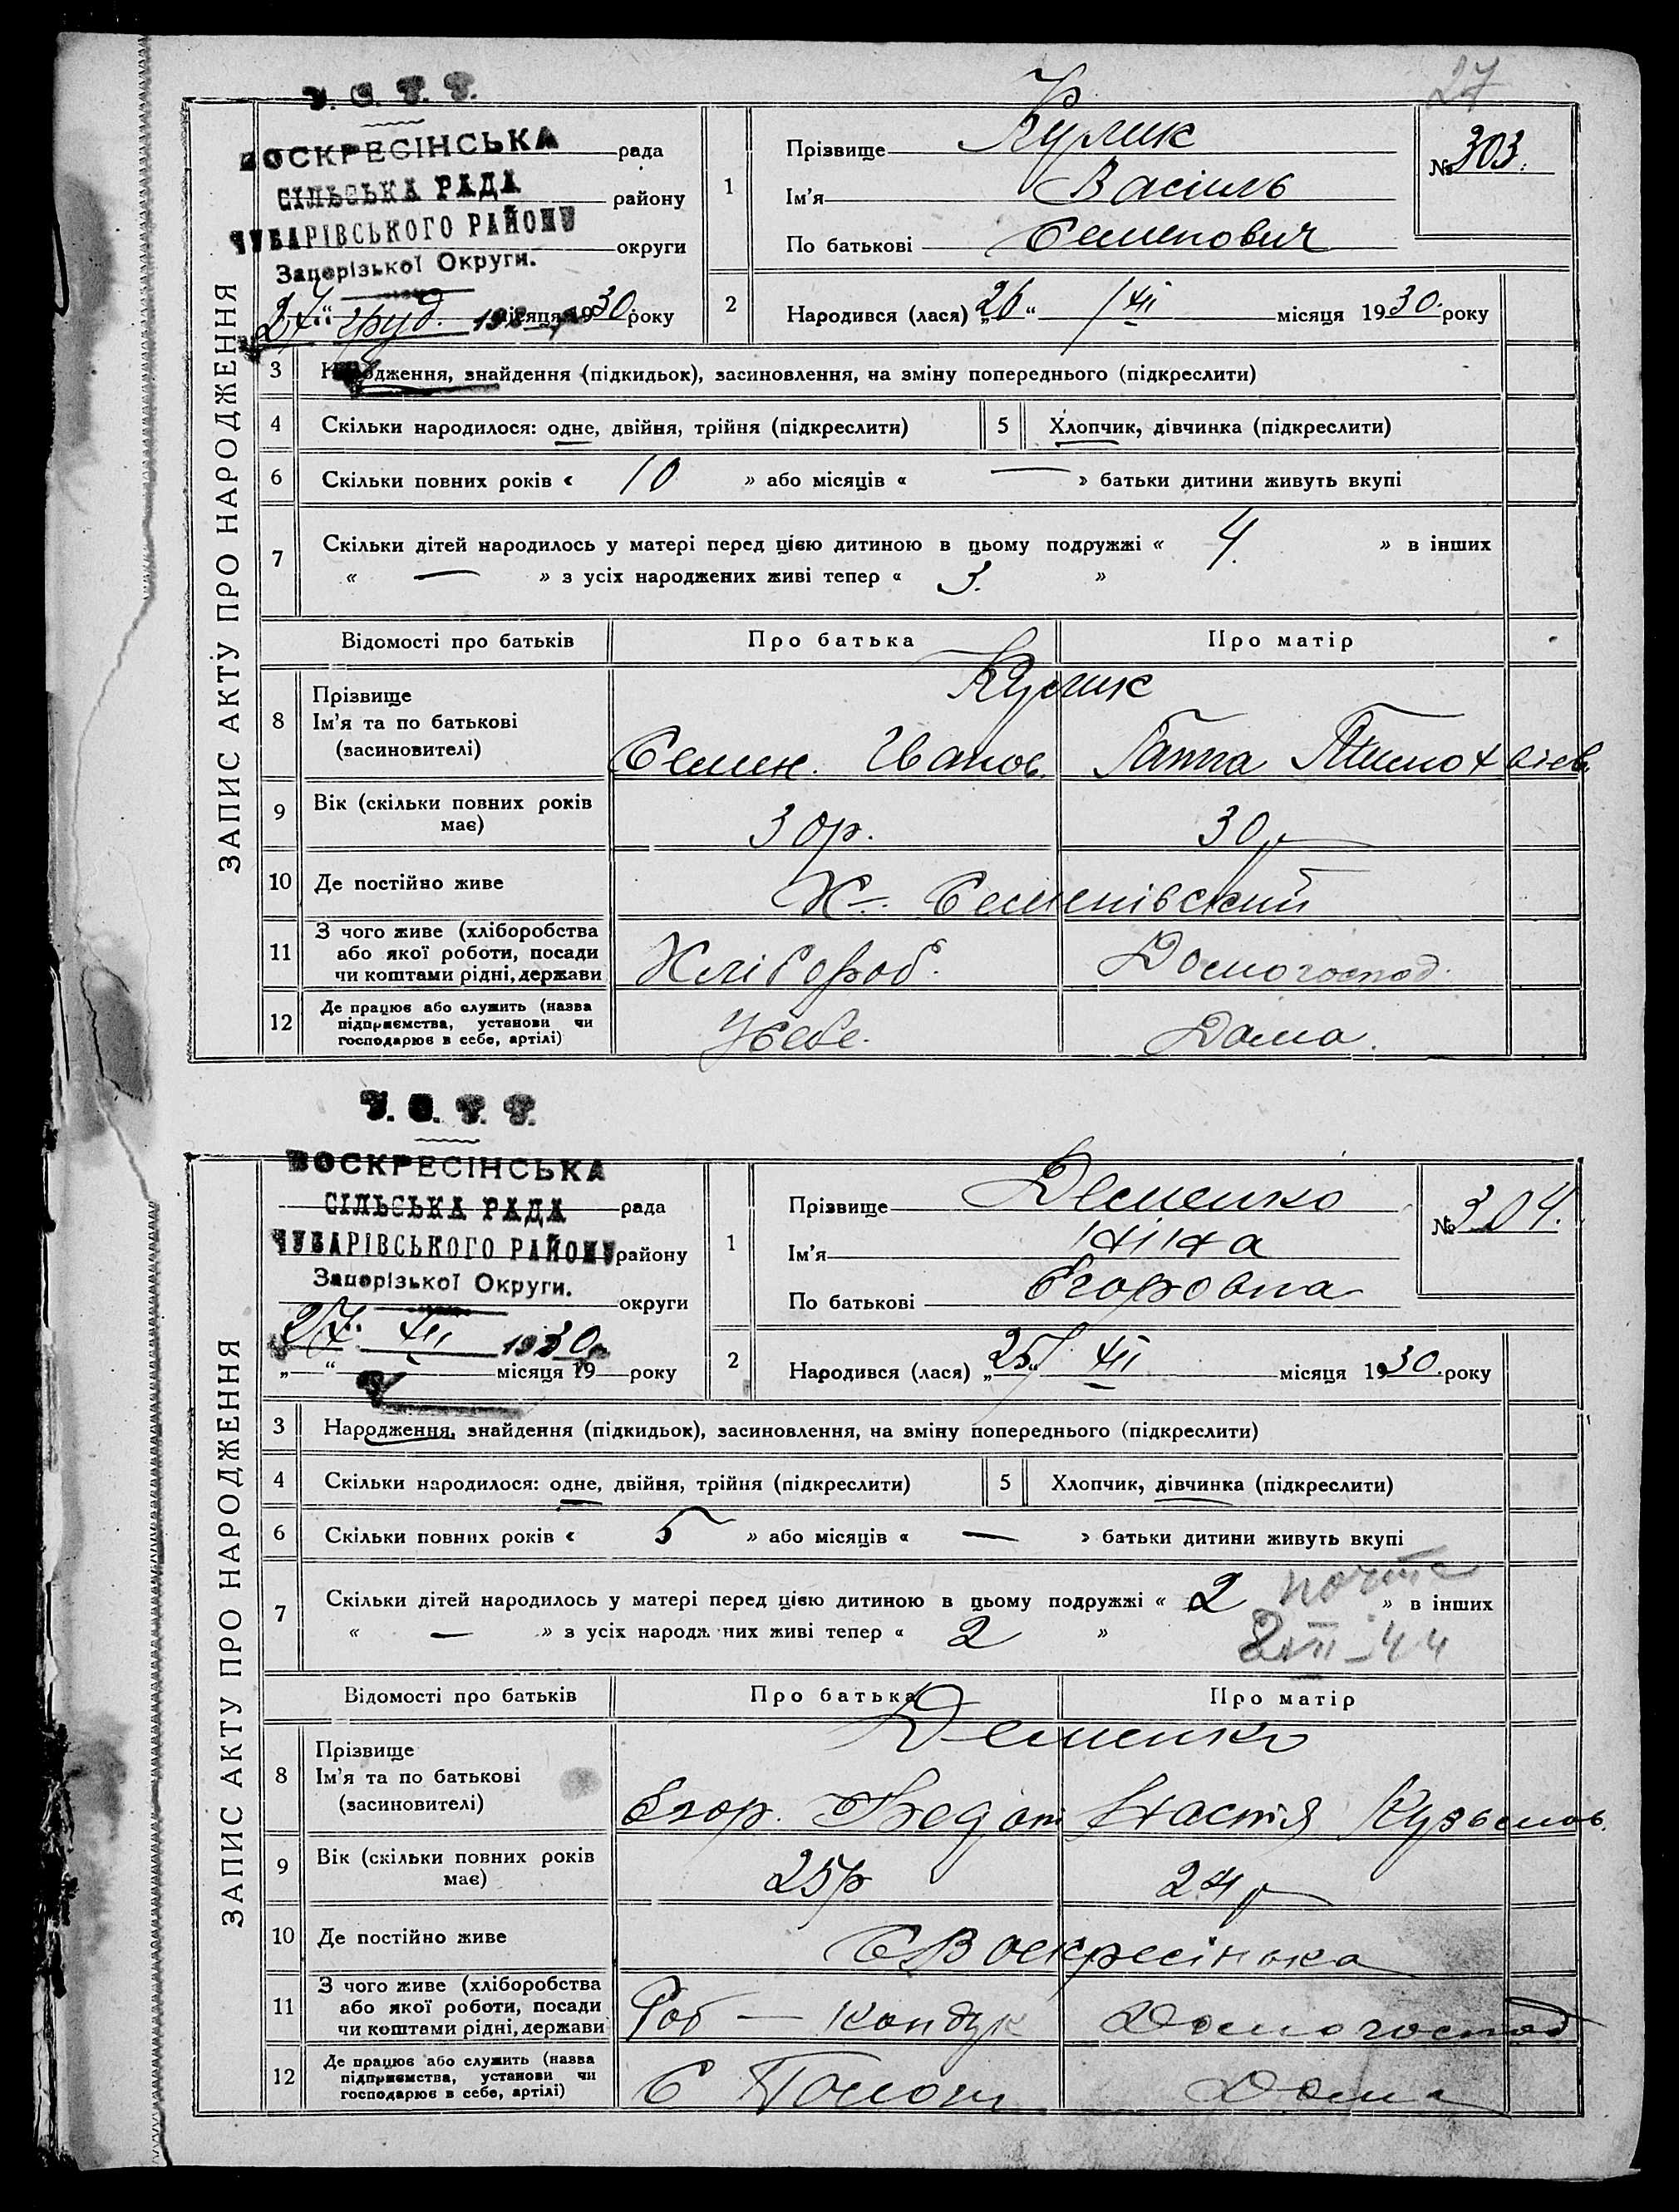 27
У. С. Р. Р.
ВОСКРЕСІНСЬКА
рада
СІЛЬСЬКА РАДА
району
ЧУБАРІВСЬКОГО РАЙОНУ
округи
Запорізької Округи.
27 груд. місяця 1930 року
ЗАПИС АКТУ ПРО НАРОДЖЕННЯ
1 Прізвище Кулик
Ім’я Васіль
По батькові Семенович
№ 303.
2 Народився (лася) „26“ XII місяця 1930. року
3 Народження, знайдення (підкидьок), засиновлення, на зміну попереднього (підкреслити)
4 Скільки народилося: одне, двійня, трійня (підкреслити) 5 Хлопчик, дівчинка (підкреслити)
6 Скільки повних років « 10 » або місяців « — » батьки дитини живуть вкупі
7 Скільки дітей народилось у матері перед цією дитиною в цьому подружжі « 4. » в інших
« — » з усіх народжених живі тепер « 3. »
Відомості про батьків Про батька Про матір
8 Прізвище Кулик
Ім’я та по батькові
(засиновителі) Семен. Іванов. Ганна
9 Вік (скільки повних років має) 30р. 30р
10 Де постійно живе Х. Семенівський
11 З чого живе (хліборобства
або якої роботи, посади
чи коштами рідні, держави Хлібороб. Домогоспод.
12 Де працює або служить (назва
підприємства, установи чи
господарює в себе, артілі) У себе. Дома.
У. С. Р. Р.
ВОСКРЕСІНСЬКА
СІЛЬСЬКА РАДА рада
ЧУБАРІВСЬКОГО РАЙОНУ району
Запорізької Округи.
округи
27 XII 1930
„—“ місяця 19 року
ЗАПИС АКТУ ПРО НАРОДЖЕННЯ
1 Прізвище Деменко
Ім’я Ніна
По батькові Єгоровна
№ 304.
2 Народився (лася) „25“ XII місяця 1930. року
3 Народження, знайдення (підкидьок), засиновлення, на зміну попереднього (підкреслити)
4 Скільки народилося: одне, двійня, трійня (підкреслити) 5 Хлопчик, дівчинка (підкреслити)
6 Скільки повних років « 5 » або місяців « — » батьки дитини живуть вкупі
7 Скільки дітей народилось у матері перед цією дитиною в цьому подружжі « 2 » в інших
« — » з усіх народжених живі тепер « 2 »
Відомості про батьків Про батька Про матір
8 Прізвище Деменко
Ім’я та по батькові
(засиновителі) Егор. Федот Настя Кузьмов.
9 Вік (скільки повних років має) 25р 24р
10 Де постійно живе С Воскресінка
11 З чого живе (хліборобства
або якої роботи, посади
чи коштами рідні, держави Роб — кондук Домогоспод
12 Де працює або служить (назва
підприємства, установи чи
господарює в себе, артілі) С Пологи Дома